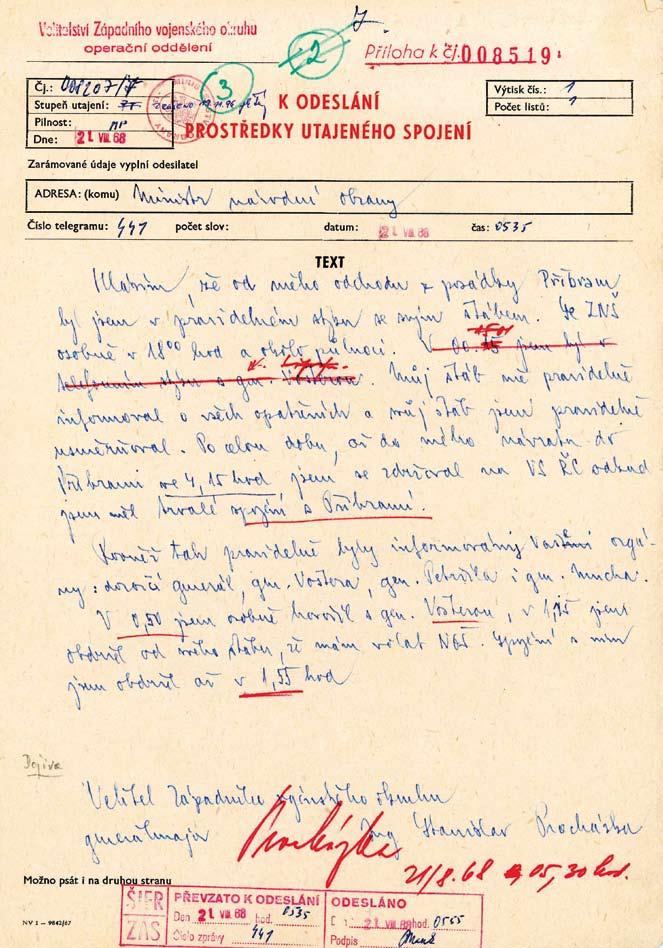 Velitelství Západního vojenského okruhu
operační oddělení
7.
2
Příloha k čj. 008519
Čj.: 008207/7
3
Stupeň utajení: PT
Pilnost:
Dne: 21. VIII. 68
K ODESLÁNÍ
PROSTŘEDKY UTAJENÉHO SPOJENÍ
Výtisk čís.: 1
Počet listů: 1
Zarámované údaje vyplní odesilatel
ADRESA: (komu) Ministr národní obrany
Číslo telegramu: 441 počet slov: datum: 21. VIII. 68 čas: 0535
TEXT
Hlásím že od mého odchodu z posádky Příbram
byl jsem v pravidelném styku se svým štábem. Se ZNŠ
osobně v 18⁰⁰ hod a okolo půlnoci. V 00.15 jsem byl v
telefonním styku s gen. Vosterou. Můj štáb mě pravidelně
informoval o všech opatřeních a svůj štáb jsem pravidelně
usměrňoval. Po celou dobu, až do mého návratu do
Příbrami ve 4,15 hod jsem se zdržoval na VS ŘC odkud
jsem měl trvalé spojení s Příbramí.
Rovněž tak pravidelně byly informovány Vaše orgá-
ny: dozorčí generál, gen. Vostera, gen. Petržila i gen. Mucha.
V 0,50 jsem osobně hovořil s gen. Vosterou, v 1,15 jsem
obdržel od svého štábu, že mám volat NGŠ. Spojení s ním
jsem obdržel až v 1,55 hod
Velitel Západního vojenského okruhu
generálmajor Ing Stanislav Procházka
Procházka
21/8.68 05,30 hod.
Možno psát i na druhou stranu
NV 1 – 9842/67
ŠIFR
ZAS
PŘEVZATO K ODESLÁNÍ
Den 21. VIII. 68 hod. 0535
Číslo zprávy 441
ODESLÁNO
21. VIII. 68 hod. 0555
Podpis